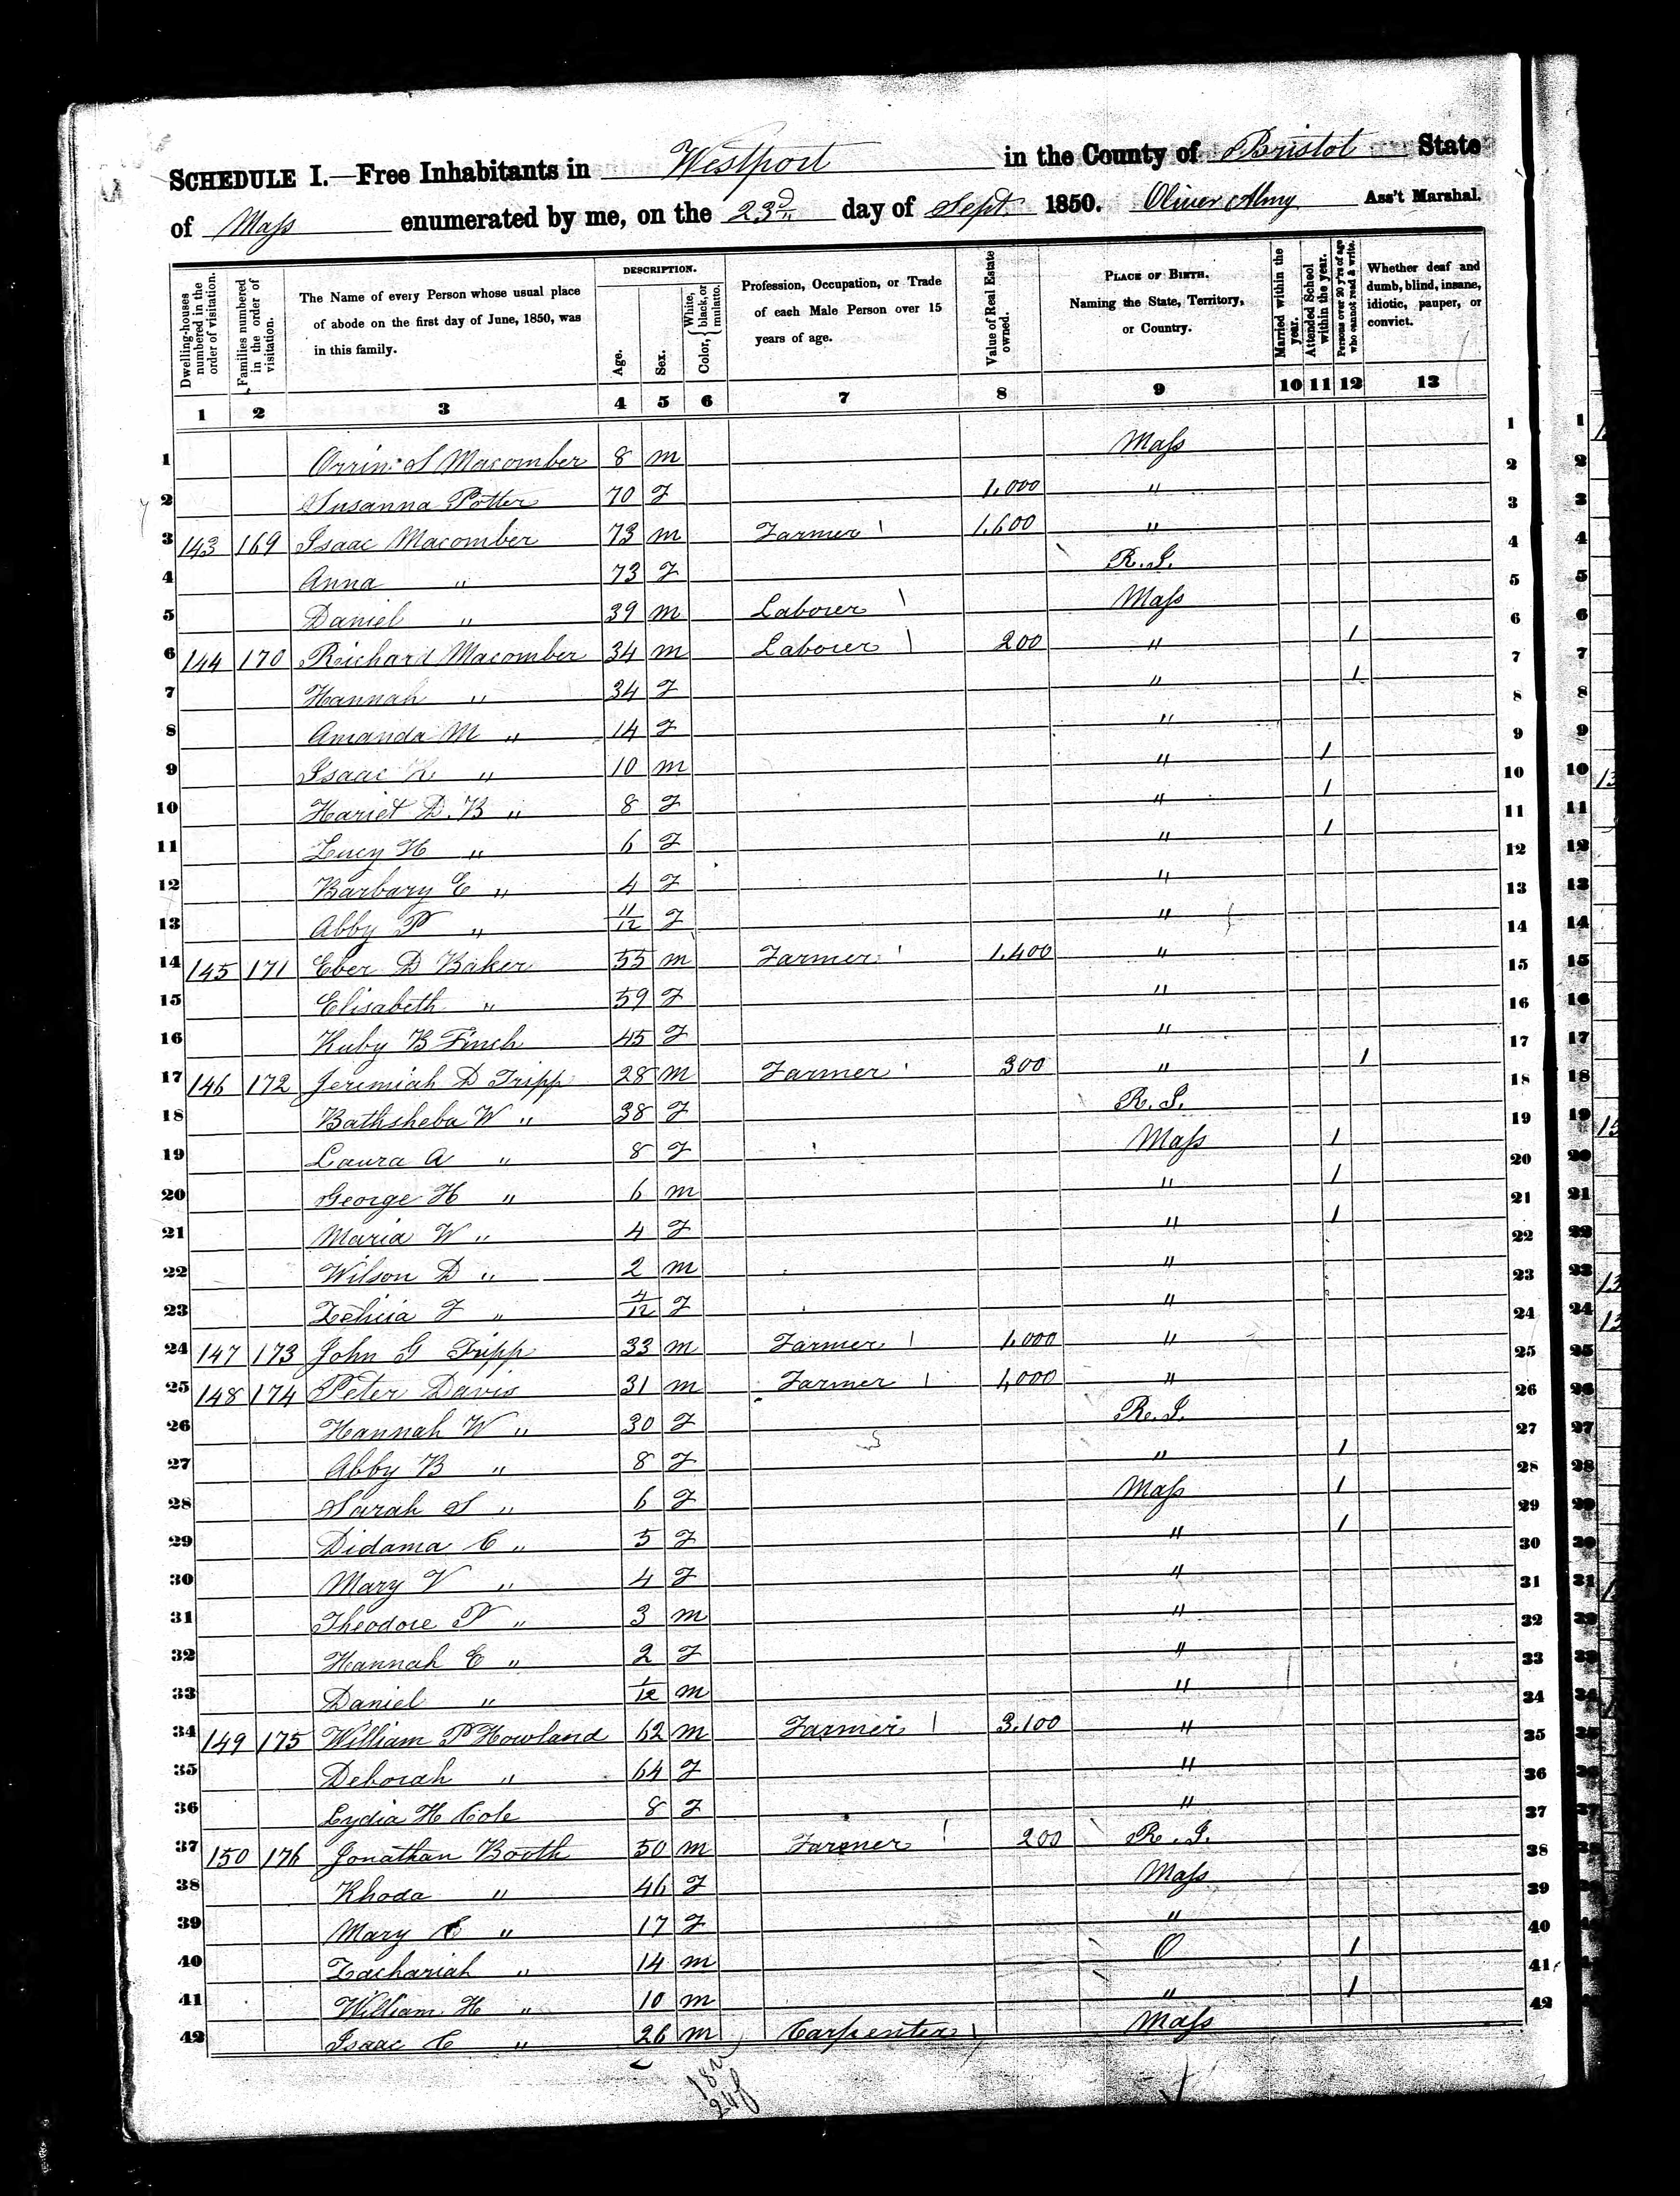 SCHEDULE I.—Free Inhabitants in Westport in the County of Bristol State
of Mass enumerated by me, on the 23d day of Sept. 1850. Oliver Almy Ass't Marshal.
Dwelling-houses numbered in the order of visitation.
Families numbered in the order of visitation.
The Name of every Person whose usual place of abode on the first day of June, 1850, was in this family.
DESCRIPTION.
Age.
Sex.
Color, { White, black, or mulatto.
Profession, Occupation, or Trade of each Male Person over 15 years of age.
Value of Real Estate owned.
PLACE OF BIRTH. Naming the State, Territory, or Country.
Married within the year.
Attended School within the year.
Persons over 20 y'rs of age who cannot read & write.
Whether deaf and dumb, blind, insane, idiotic, pauper, or convict.
1 2 3 4 5 6 7 8 9 10 11 12 13
1 Orrin S Macomber 8 m Mass 1
2 Susanna Potter 70 F 1,000 " 2
3 143 169 Isaac Macomber 73 m Farmer 1,600 " 3
4 Anna " 73 F R.I. 4
5 Daniel " 39 m Laborer Mass 5
6 144 170 Richard Macomber 34 m Laborer 200 " 1 6
7 Hannah " 34 F " 1 7
8 Amanda M " 14 F " 8
9 Isaac " 10 m " 1 9
10 Hariet D. B " 8 F " 1 10
11 Lucy H " 6 F " 1 11
12 Barbary E " 4 F " 12
13 Abby P " 11/12 F " 13
14 145 171 Eber D Baker 55 m Farmer 1,400 " 14
15 Elisabeth " 59 F " 15
16 Ruby B Finch 45 F " 16
17 146 172 Jeremiah D Tripp 28 m Farmer 300 " 1 17
18 Bathsheba W " 38 F R.I. 18
19 Laura A " 8 F Mass 1 19
20 George H " 6 m " 1 20
21 Maria W " 4 F " 1 21
22 Wilson D " 2 m " 22
23 F " 4/12 F " 23
24 147 173 John G Tripp 33 m Farmer 1,000 " 24
25 148 174 Peter Davis 31 m Farmer 1,000 " 25
26 Hannah W " 30 F R.I. 26
27 Abby B " 8 F " 1 27
28 Sarah S " 6 F Mass 1 28
29 Didama C " 5 F " 1 29
30 Mary V " 4 F " 30
31 Theodore P " 3 m " 31
32 Hannah E " 2 F " 32
33 Daniel " 1/12 m " 33
34 149 175 William P Howland 62 m Farmer 3,100 " 34
35 Deborah " 64 F " 35
36 Lydia H Cole 8 F " 36
37 150 176 Jonathan Booth 50 m Farmer 200 R.I. 37
38 Rhoda " 46 F Mass 38
39 Mary E " 17 F " 39
40 Zachariah " 14 m O 1 40
41 William H " 10 m " 1 41
42 Isaac C " 26 m Carpenter Mass 42
18m
24f